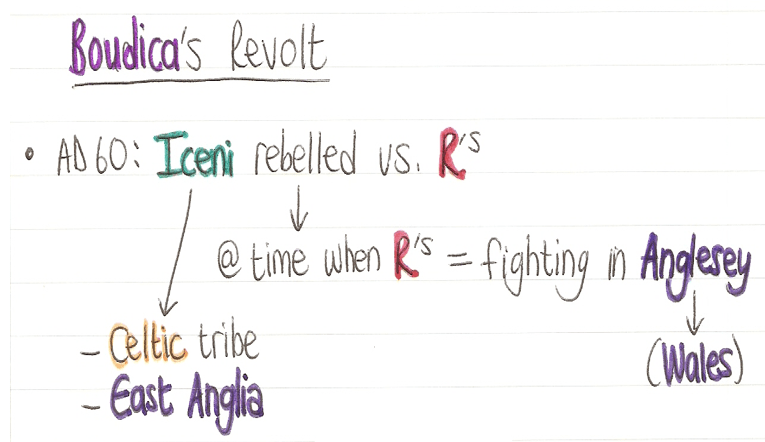 Boudica's Revolt
• AD60: Iceni rebelled vs. R's
@ time when R's = fighting in Anglesey
(Wales)
- Celtic tribe
- East Anglia